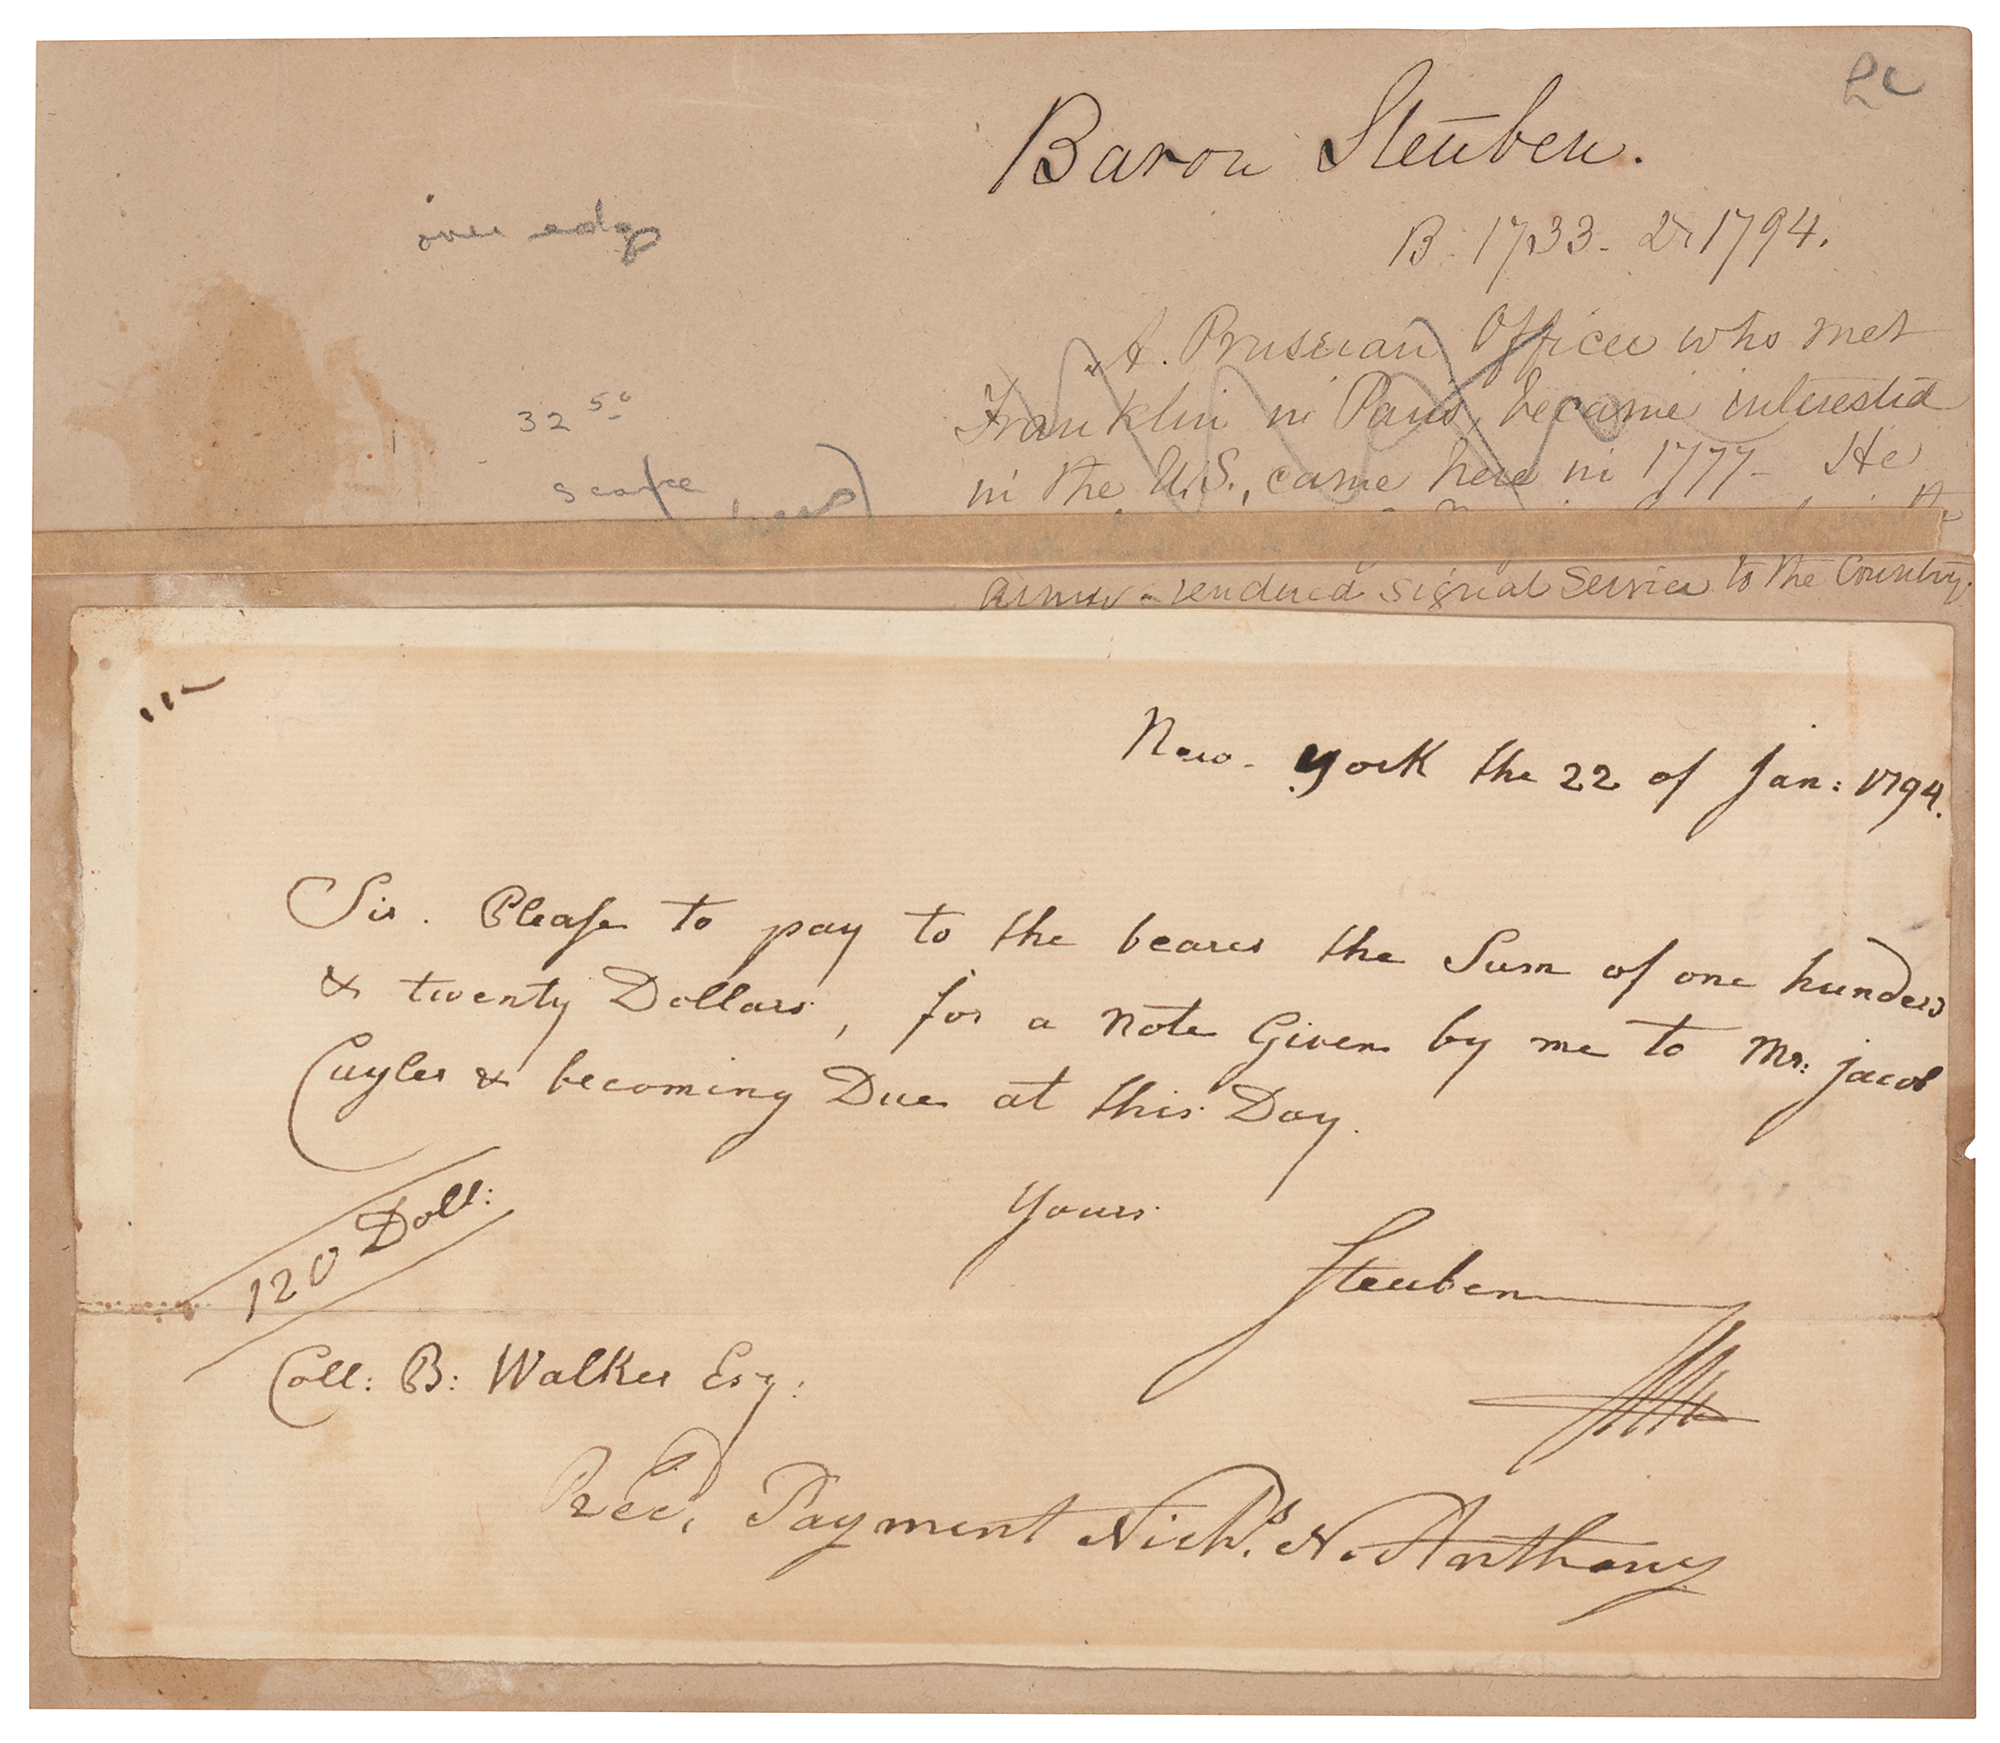 Baron Steuben.
B. 1733. D. 1794.
over edge
A. Prussian Officer who met
Franklin in Paris, became interested
in the U.S., came here in 1777 - He
32 50
scarce
the
army - rendered signal service to the Country.
New-york the 22 of Jan: 1794.
Sir. Please to pay to the bearer the Sum of one hunderd
& twenty Dollars, for a note Given by me to Mr: jacob
Cuyler & becoming Due at this Day.
Yours
120 Doll:
Steuben
Coll: B: Walker Esq:
Recd, Payment Nichs. N. Anthony